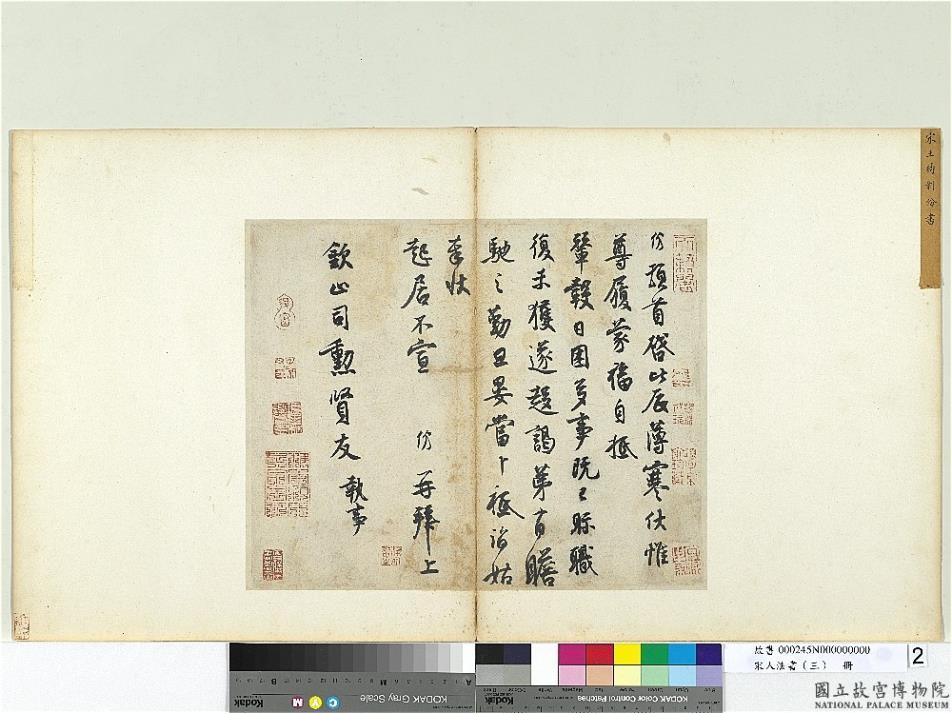 宋王詢劉份書
份頓首啓比辰薄寒伏惟
尊履蒙福自抵
輦轂日困多事既已縣職
復未獲遂趍謁第有瞻
馳之勤旦晏當卜祗詣姑
奉狀
起居不宣 份再拜上
欽止司勳賢友 執事
KODAK Gray Scale
Kodak
KODAK Color Control Patches
故書 000245N000000000
宋人法書(三) 冊
2
國立故宮博物院
NATIONAL PALACE MUSEUM